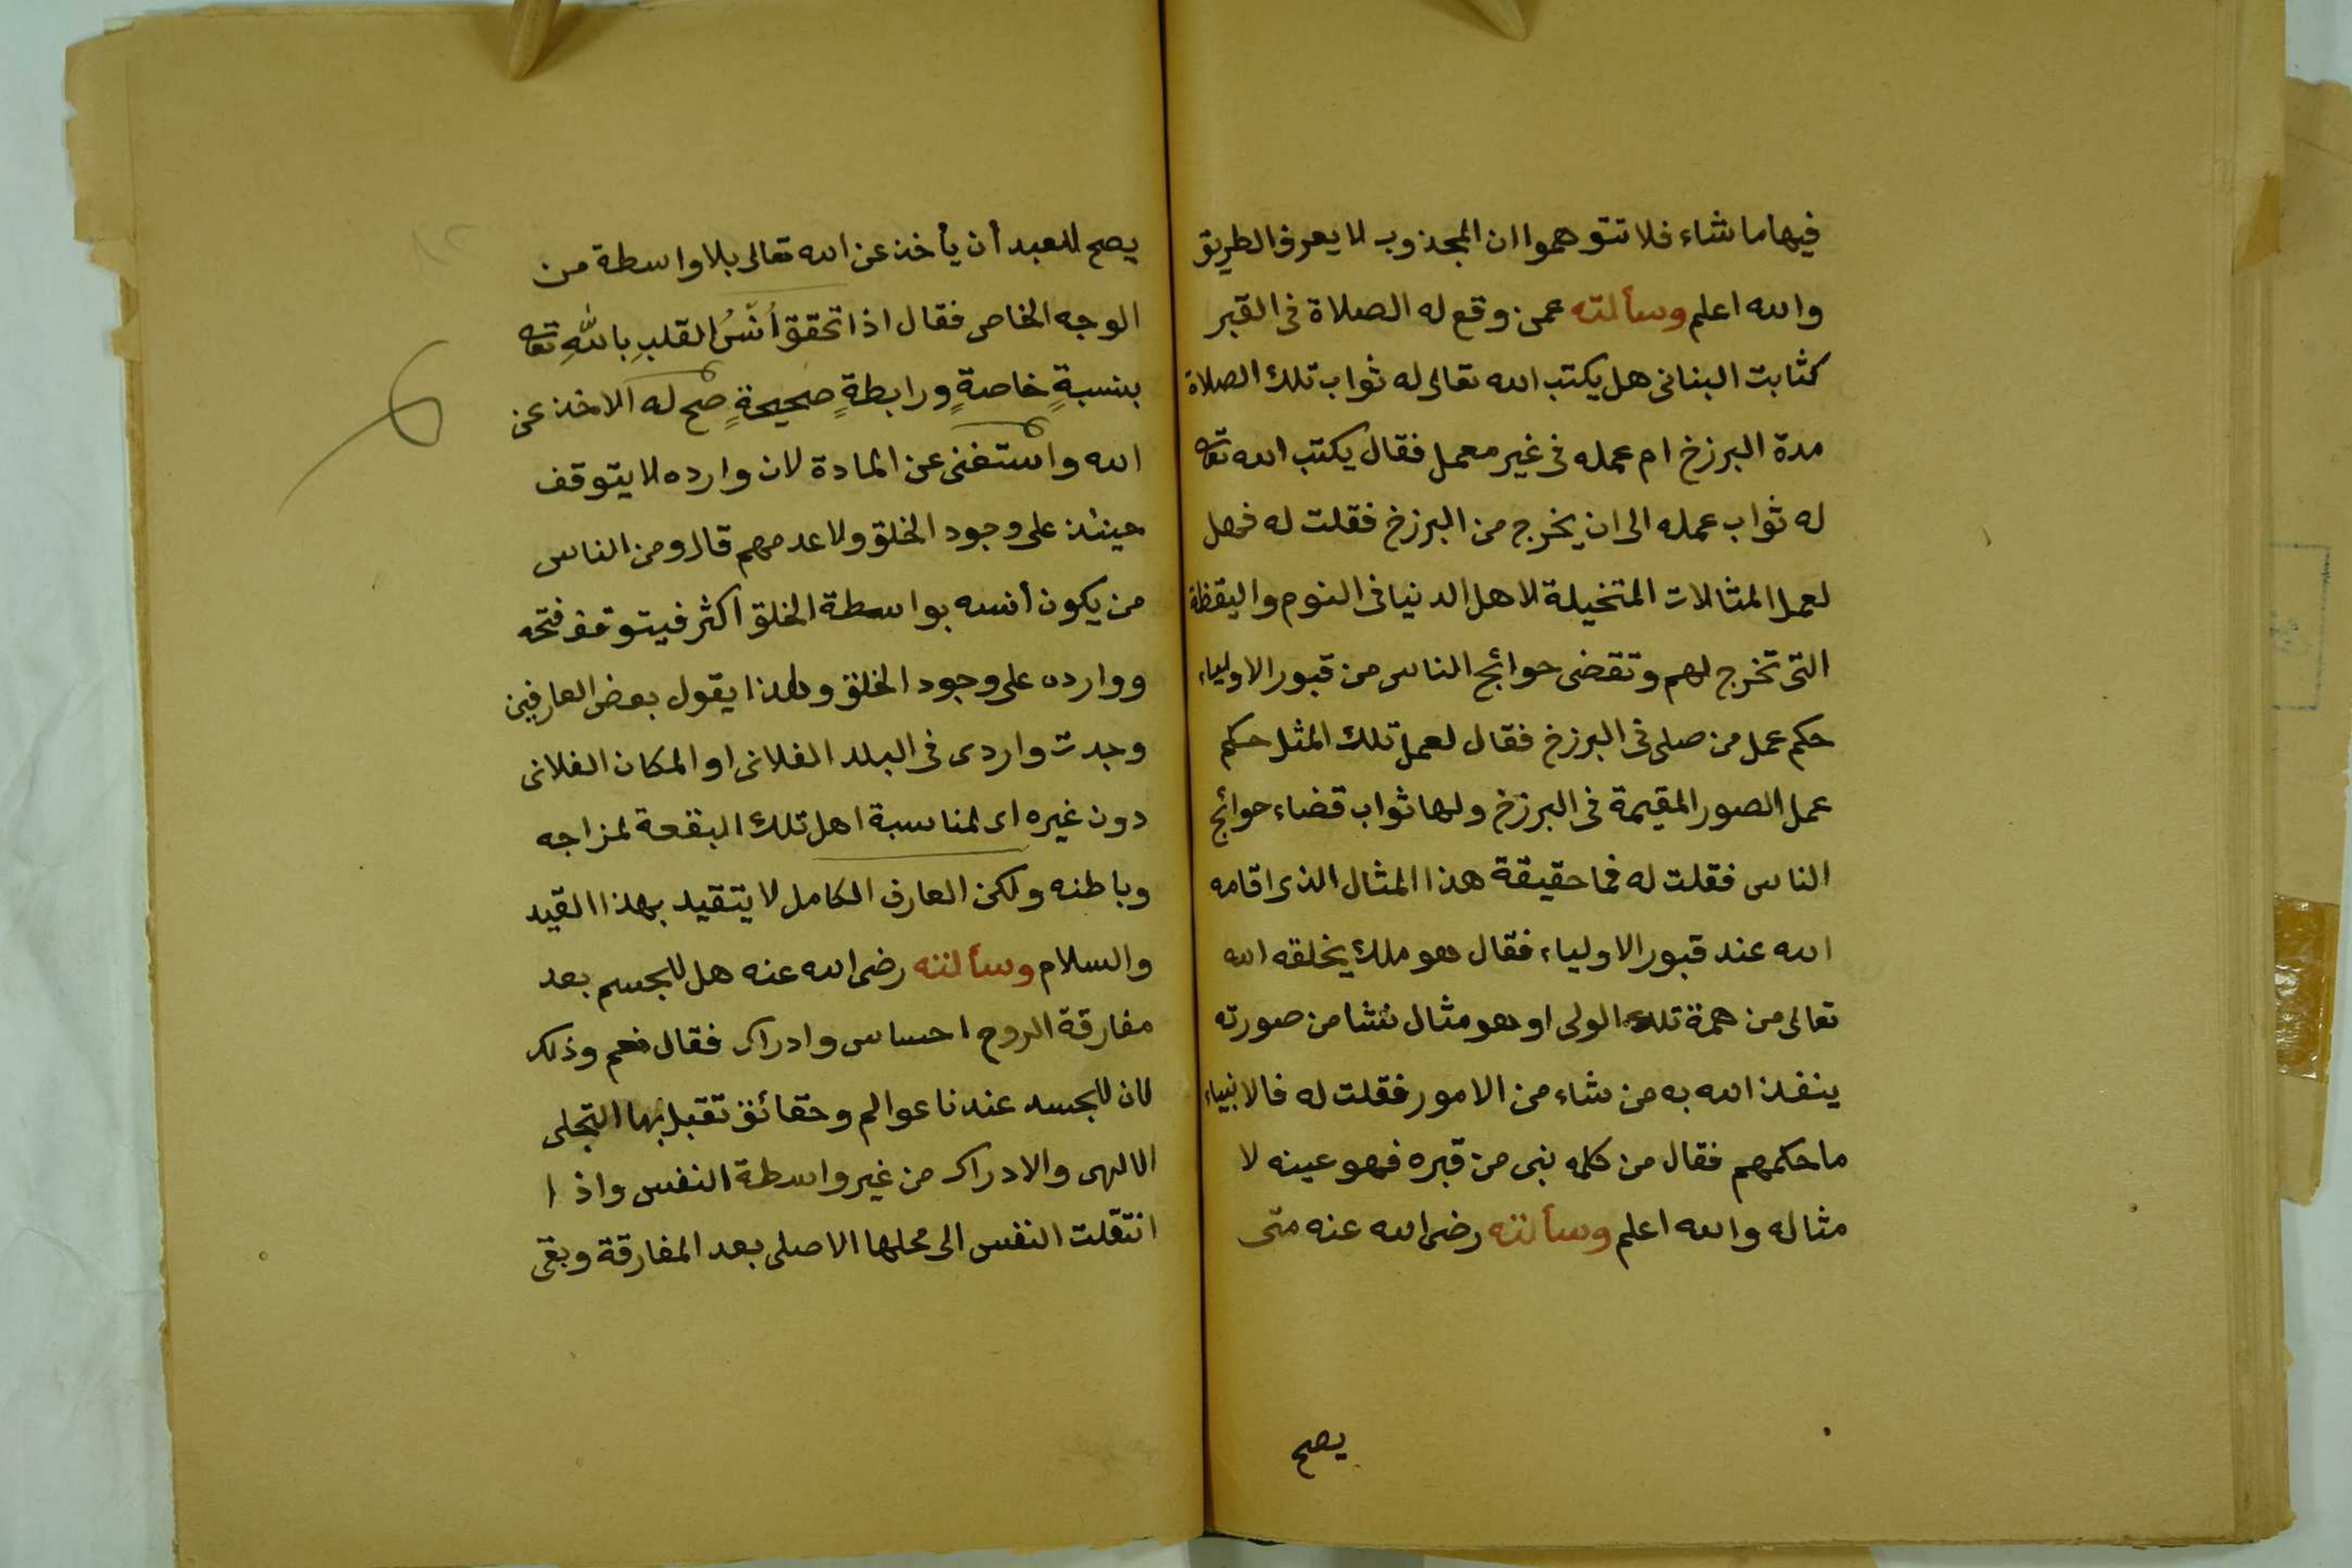 فيها ما شاء فلا تتوهموا ان المجذوب لا يعرف الطريق
والله اعلم وسألته عمن وقع له الصلاة فى القبر
كثابت البنانى هل يكتب الله تعالى له ثواب تلك الصلاة
مدة البرزخ ام عمله فى غير معمل فقال يكتب الله تعا
له ثواب عمله الى ان يخرج من البرزخ فقلت له فهل
لعمل المثالات المتخيلة لاهل الدنيا فى النوم واليقظة
التى تخرج لهم وتقضى حوائج الناس من قبور الاولياء
حكم عمل من صلى فى البرزخ فقال لعمل تلك المثل حكم
عمل الصور المقيمة فى البرزخ ولها ثواب قضاء حوائج
الناس فقلت له فما حقيقة هذا المثال الذى اقامه
الله عند قبور الاولياء فقال هو ملك يخلقه الله
تعالى من همة تلك الولى او هو مثال نشا من صورته
ينفذ الله به من شاء من الامور فقلت له فالانبياء
ما حكمهم فقال من كلمه نبى من قبره فهو عينه لا
مثاله والله اعلم وسألته رضى الله عنه متى
يصح
يصح للعبد أن يأخذ عن الله تعالى بلا واسطة من
الوجه الخاص فقال اذا تحقق أنسُ القلبِ باللهِ تعا
بنسبةٍ خاصةٍ ورابطةٍ صحيحةٍ صح له الاخذ عن
الله واستغنى عن المادة لان وارده لا يتوقف
حينئذ على وجود الخلق ولا عدمهم قال ومن الناس
من يكون أنسه بواسطة الخلق اكثر فيتوقف فتحه
ووارده على وجود الخلق ولهذا يقول بعض العارفين
وجدت واردى فى البلد الفلانى او المكان الفلانى
دون غيره اى لمناسبة اهل تلك البقعة لمزاجه
وباطنه ولكن العارف الكامل لا يتقيد بهذا القيد
والسلام وسألته رضى الله عنه هل للجسم بعد
مفارقة الروح احساس وادراك فقال نعم وذلك
لان للجسد عندنا عوالم وحقائق تقبل بها التجلى
الالهى والادراك من غير واسطة النفس واذا
انتقلت النفس الى محلها الاصلى بعد المفارقة وبقى